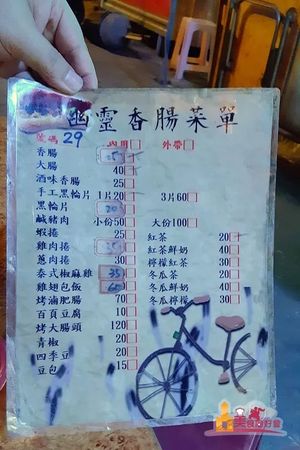 幽靈香腸菜單
號碼 29 內用 外帶
香腸
大腸 40
酒味香腸 25
手工黑輪片 1片20 3片60
黑輪片
鹹豬肉 小份50 大份100
蝦捲 25 紅茶 20
雞肉捲 35 紅茶鮮奶 40
蔥肉捲 30 檸檬紅茶 30
泰式椒麻雞 35 冬瓜茶 20
雞翅包飯 60 冬瓜鮮奶 40
烤滷肥腸 70 冬瓜檸檬 30
百頁豆腐 10
烤大腸頭 120
青椒 20
四季豆 20
豆包 15